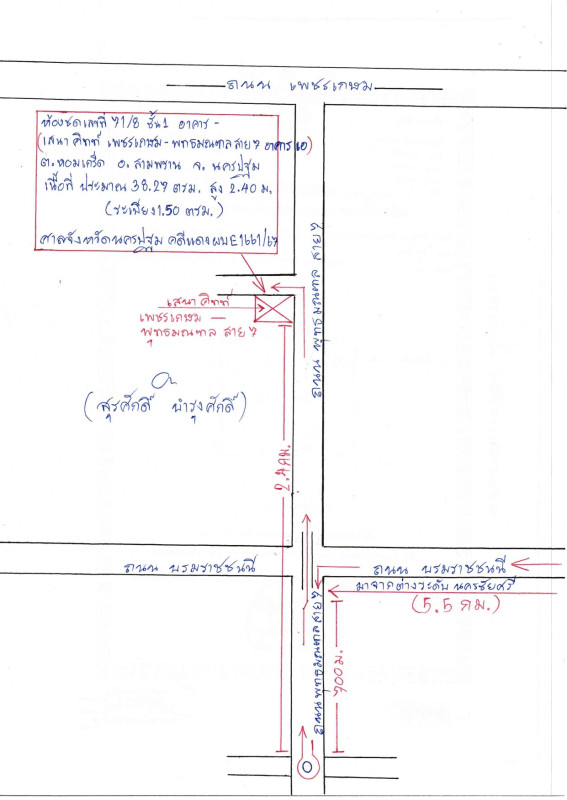 ถนน เพชรเกษม
ห้องชุดเลขที่ 71/8 ชั้น 1 อาคาร -
(เสนา คิทท์ เพชรเกษม - พุทธมณฑล สาย 7 อาคาร เอ)
ต.หอมเกร็ด อ.สามพราน จ.นครปฐม
เนื้อที่ ประมาณ 38.27 ตรม. สูง 2.40 ม.
(ระเบียง 1.50 ตรม.)
ศาลจังหวัดนครปฐม คดีแดง ผบE1661/67
ถนน พุทธมณฑล สาย 7
เสนา คิทท์
เพชรเกษม —
พุทธมณฑล สาย 7
(สุรศักดิ์ บำรุงศักดิ์)
2.4 กม.
ถนน บรมราชชนนี
ถนน บรมราชชนนี
มาจากต่างระดับ นครชัยศรี
(5.5 กม.)
ถนนพุทธมณฑล สาย 7
700 ม.